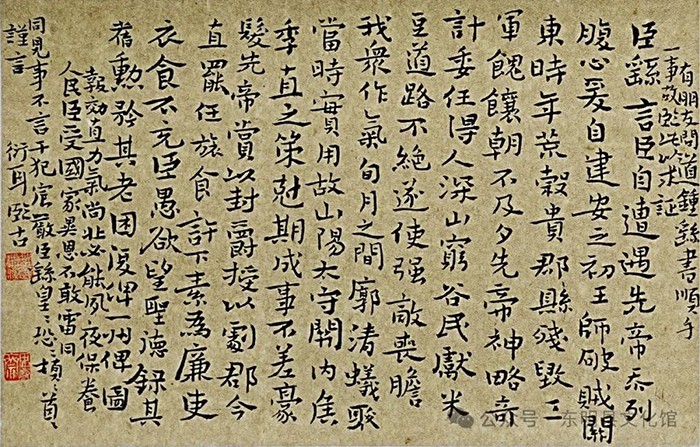 有朋友問道鍾繇書順手
一事敬臨此以求証
臣繇言臣自遭遇先帝忝列
腹心爰自建安之初王師破賊關
東時年荒穀貴郡縣殘毀三
軍餽饟朝不及夕先帝神略奇
計委任得人深山窮谷民獻米
豆道路不絕遂使强敵喪膽
我衆作氣旬月之間廓清蟻聚
當時實用故山陽太守關內侯
季直之策尅期成事不差豪
髮先帝賞以封爵授以劇郡今
直罷任旅食許下素為廉吏
衣食不充臣愚欲望聖德錄其
舊勳矜其老困復俾一州俾圖
報効直力氣尚壯必能夙夜保養
人民臣受國家異恩不敢雷同
同見事不言干犯宸嚴臣繇皇々恐々頓々首々
謹言
公众号·东明县文化馆